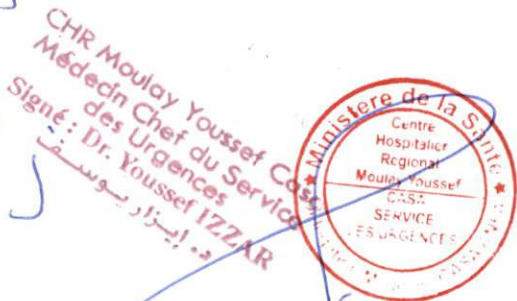 CHR Moulay Youssef Casa
Médecin Chef du Service
des Urgences
Signé : Dr. Youssef IZZAR
د. إيزار يوسف
Ministere de la Sante
Centre
Hospitalier
Regional
Moulay Youssef
CASA
SERVICE
ES URGENCES